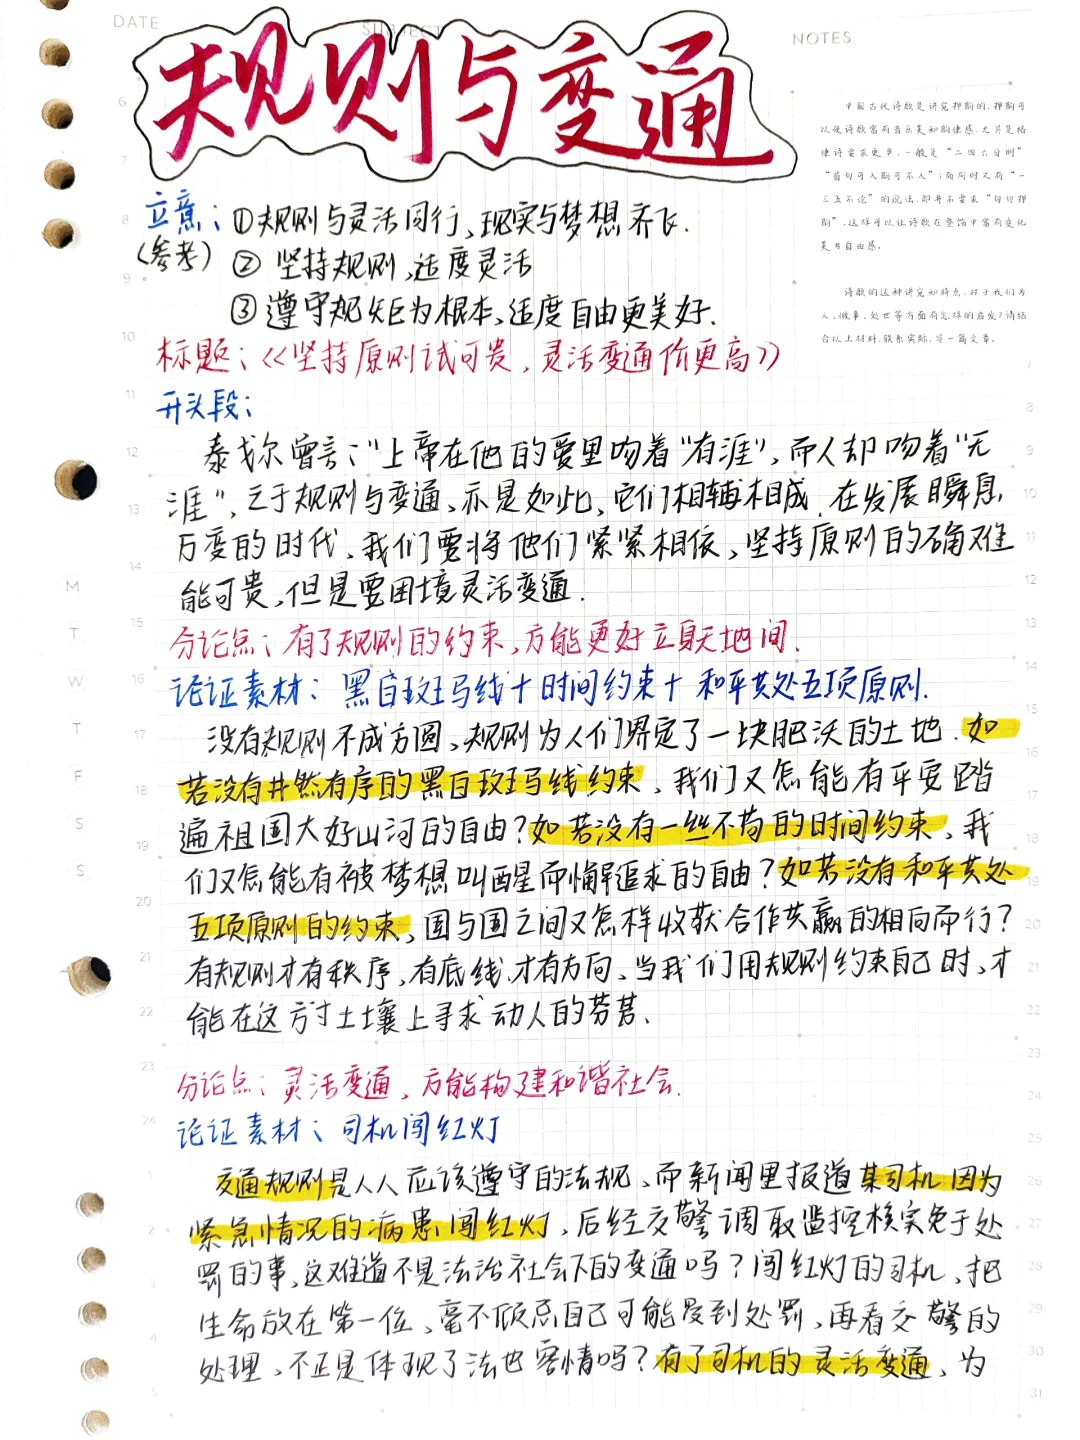 DATE
SUBJECT
NOTES
规则与变通
中国古代诗歌是讲究押韵的,押韵可
以使诗歌富有音乐美和韵律感,尤其是格
律诗要求更严,一般是“二四六分明”
“首句可入韵可不入”;而同时又有“一
三五不论”的说法,即并不要求“句句押
韵”,这样可以让诗歌在整饬中富有变化
美与自由感。
诗歌的这种讲究和特点,对于我们为
人、做事、处世等方面有怎样的启发?请结
合以上材料,联系实际,写一篇文章。
立意:①规则与灵活同行,现实与梦想齐飞.
(参考) ② 坚持规则,适度灵活
③ 遵守规矩为根本,适度自由更美好.
标题:《坚持原则诚可贵,灵活变通价更高》
开头段:
泰戈尔曾言:“上帝在他的爱里吻着“有涯”,而人却吻着“无
涯”,之于规则与变通,亦是如此,它们相辅相成.在发展瞬息
万变的时代,我们要将他们紧紧相依,坚持原则的确难
能可贵,但是要因境灵活变通.
分论点:有了规则的约束,方能更好立身天地间.
论证素材:黑白斑马线+时间约束+和平共处五项原则.
没有规则不成方圆,规则为人们界定了一块肥沃的土地.如
若没有井然有序的黑白斑马线约束,我们又怎能有平安踏
遍祖国大好山河的自由?如若没有一丝不苟的时间约束,我
们又怎能有被梦想叫醒而懈追求的自由?如若没有和平共处
五项原则的约束,国与国之间又怎样收获合作共赢的相向而行?
有规则才有秩序,有底线才有方向,当我们用规则约束自己时,才
能在这方寸土壤上寻求动人的芳菲.
分论点:灵活变通,方能构建和谐社会.
论证素材:司机闯红灯
交通规则是人人应该遵守的法规,而新闻里报道某司机因为
紧急情况的病患闯红灯,后经交警调取监控核实免于处
罚的事,这难道不是法治社会下的变通吗?闯红灯的司机,把
生命放在第一位,毫不顾忌自己可能受到处罚,再看交警的
处理,不正是体现了法也容情吗?有了司机的灵活变通,为